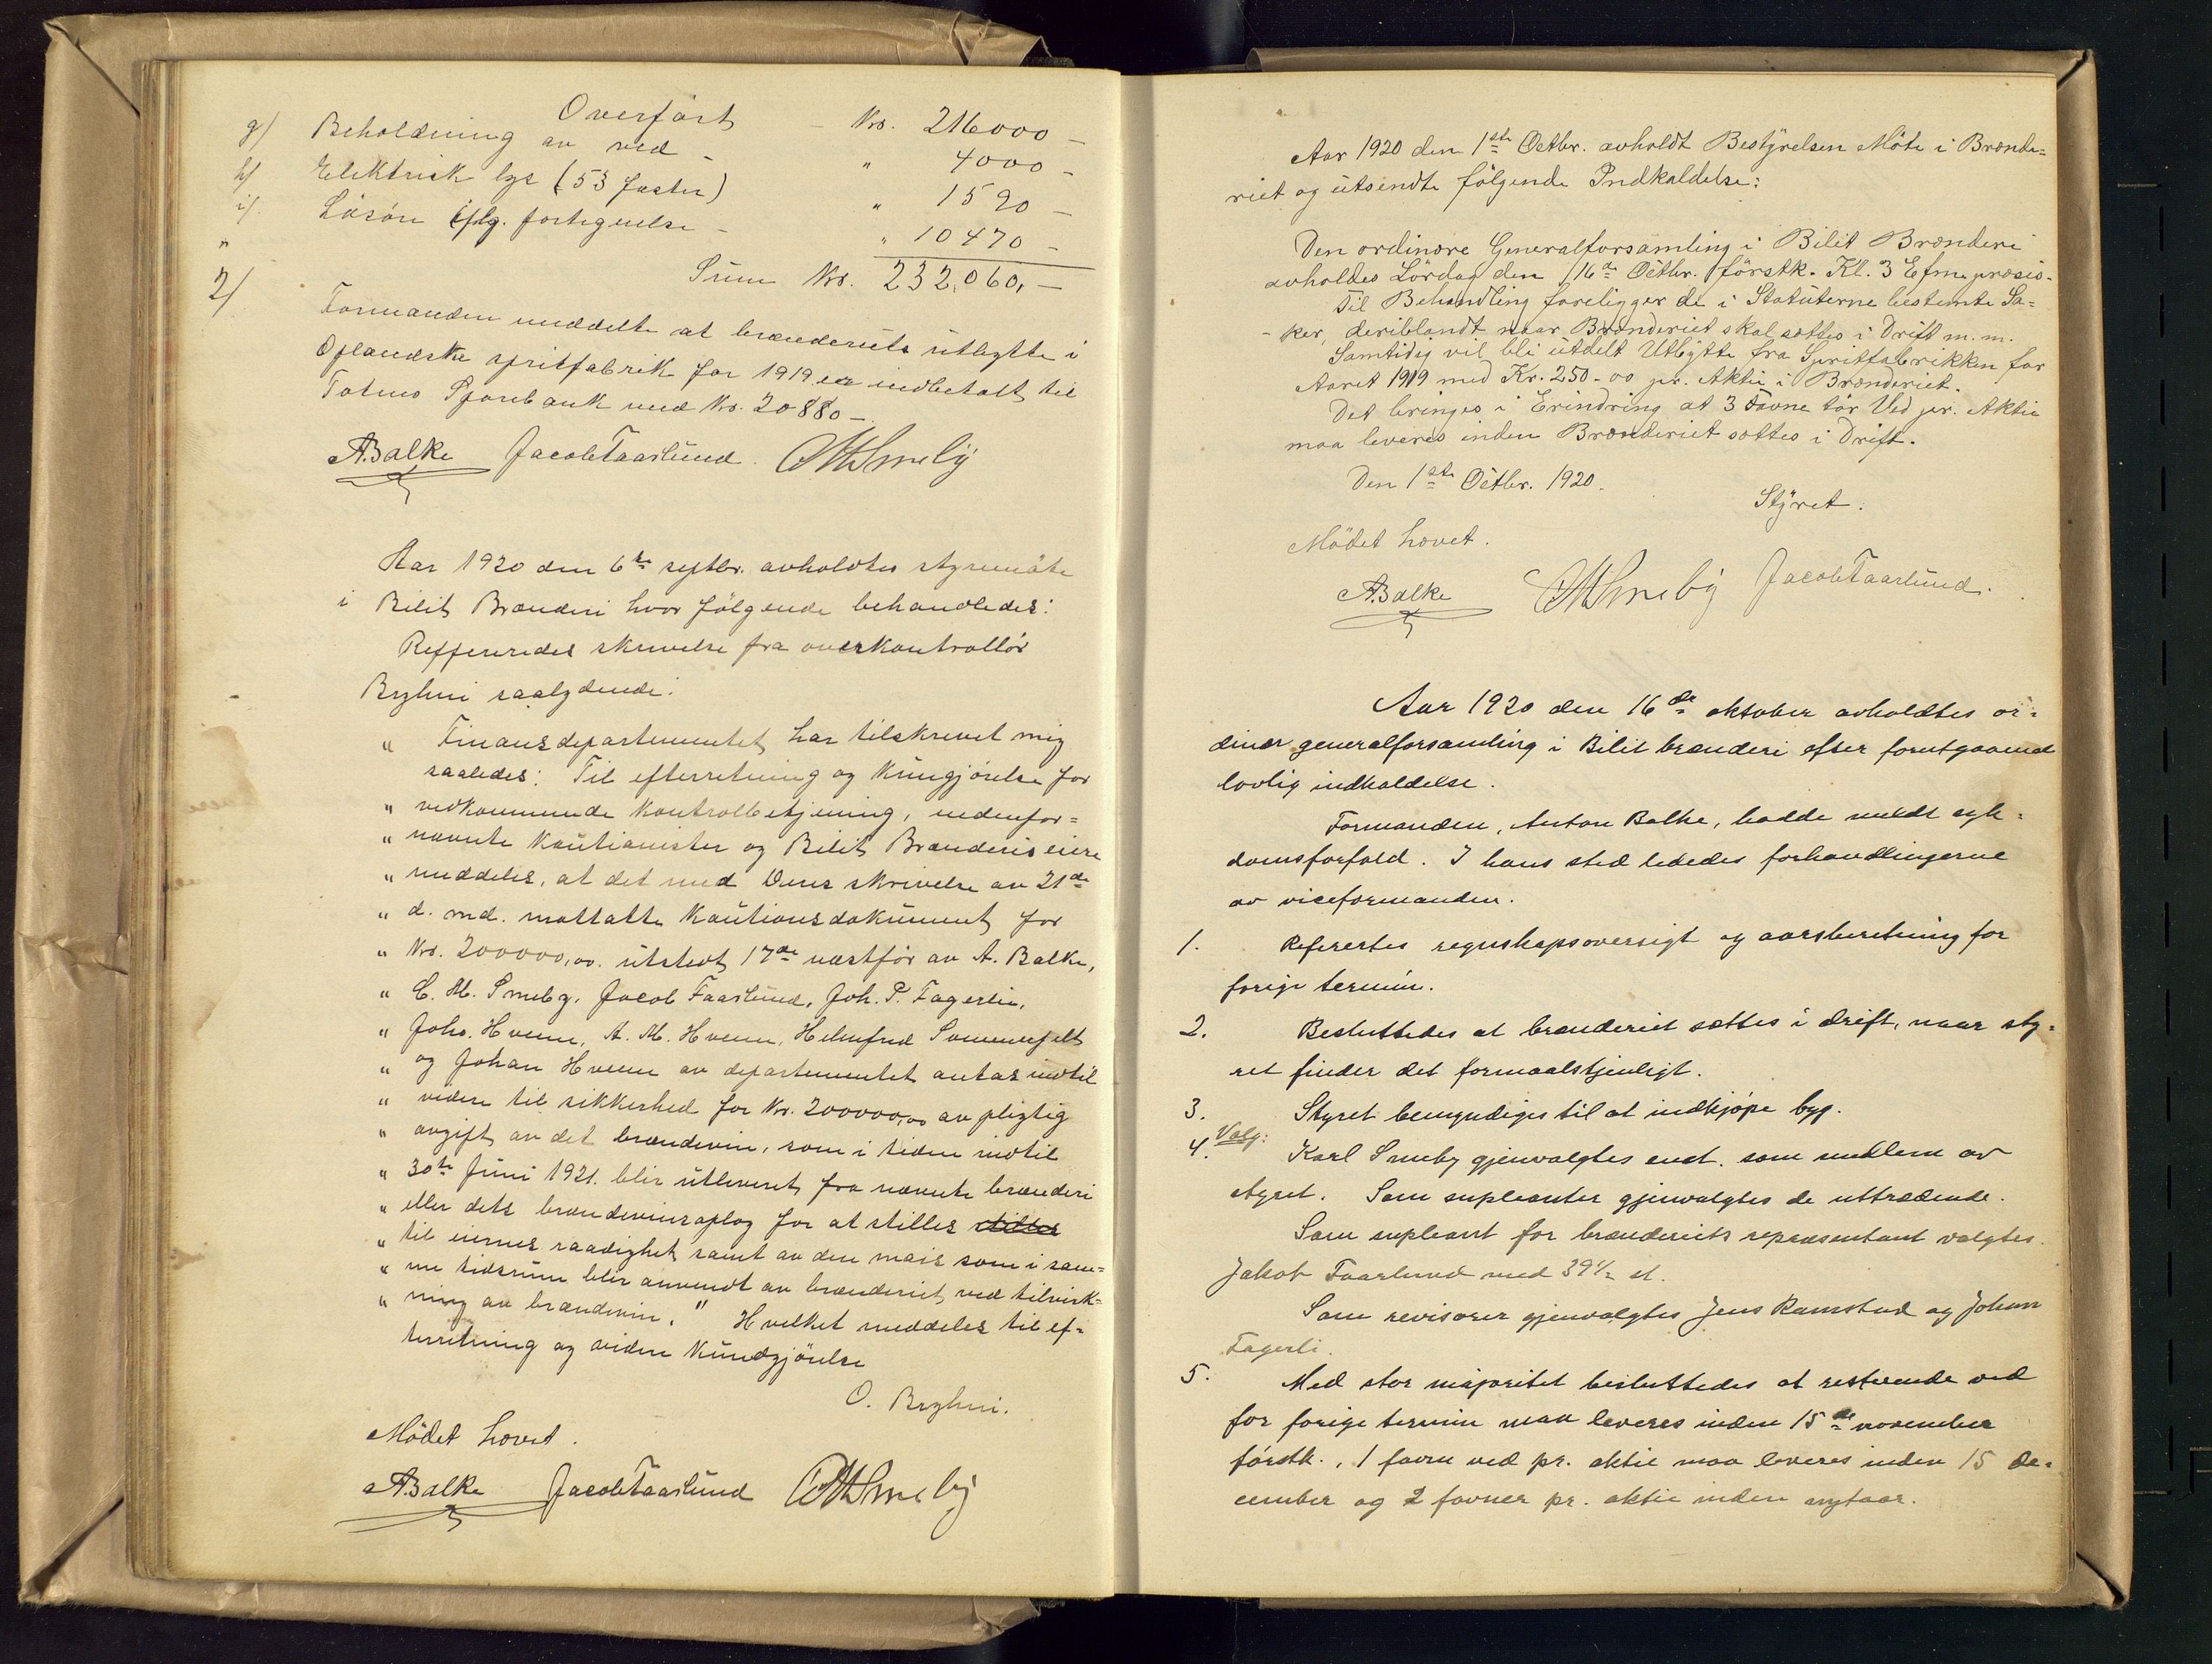 Overført - Kr. 216000 -
g) Beholdning av ved - " 4000 -
h) Elektrisk lys (53 faster) " 1590 -
i) Løsøre iflg. fortegnelse - " 10470 -
" Sum Kr. 232,060, -
2) Formanden meddelte at brænderiets utbytte i
Oplandske spritfabrik for 1919 er indbetalt til
Totens Sparebank med Kr. 20880 -
A Balke Jacob Faarlund. CM Smeby
Aar 1920 den 6te septbr. avholdtes styremøte
i Bilit Brænderi hvor følgende behandledes:
Reffereredes skrivelse fra overkontrollør
Bryhni saalydende:
" Finansdepartementet har tilskrevet mig
saaledes: Til efterretning og kungjørelse for
" vedkommende kontrolbetjening, nedenfor=
" nævnte kautionister og Bilit Brænderis eiere
" meddeles, at det med Deres skrivelse av 21de
" d. md. mottatte kautionsdokument for
" Kr. 200000,00. utstedt 17de næstfør av A. Balke,
" C. M. Smeby, Jacob Faarlund, Joh. P. Fagerlie,
" Johs. Hveem, A. M. Hveem, Helmfred Sommerfelt
" og Johan Hveem av departementet antas indtil
" videre til sikkerhed for Kr. 200000,00 av pligtig
" avgift av det brændevin, som i tiden indtil
" 30te Juni 1921. blir utleveret fra nævnte brænderi
" eller dets brændevinsoplag for at stilles stilles
" til eiernes raadighet samt av den mais som i sam=
" me tidsrum blir anvendt av brænderiet ved tilvirk=
" ning av brændevin. " Hvilket meddeles til ef=
terretning og videre kundgjørelse
O. Bryhni.
Mödet hævet.
A Balke Jacob Faarlund CM Smeby
Aar 1920 den 1ste Octbr. avholdt Bestyrelsen Möte i Brænde=
riet og utsendte fölgende Indkaldelse:
Den ordinære Generalforsamling i Bilit Brænderi
avholdes Lördag den 16de Octbr. förstk. Kl. 3 Efm. præsis.
Til Behandling foreligger de i Statuterne bestemte Sa=
- ker, deriblandt naar Brænderiet skal sættes i Drift m. m.
Samtidig vil bli utdelt Utbytte fra Spritfabrikken for
Aaret 1919 med Kr. 250-00 pr. Aktie i Brænderiet.
Det bringes i Erindring at 3 Favne tör Ved pr. Aktie
maa leveres inden Brænderiet sættes i Drift.
Den 1ste Octbr. 1920.
Styret.
Mödet hævet.
A Balke CM Smeby Jacob Faarlund.
Aar 1920 den 16de oktober avholdtes or=
dinær generalforsamling i Bilit brænderi efter forutgaaende
lovlig indkaldelse.
Formanden, Anton Balke, hadde meldt syk=
domsforfald. I hans sted lededes forhandlingerne
av viceformanden.
1. Refertes regnskapsoversigt og aarsberetning for
forige termin.
2. Besluttedes at brænderiet sættes i drift, naar sty=
ret finder det formaalstjenligt.
3. Styret bemyndiges til at indkjøpe byg.
4. Valg: Karl Smeby gjenvalgtes enst. som medlem av
styret. Som supleanter gjenvalgtes de uttrædende.
Som supleant for brænderiets repræsentant valgtes
Jakob Faarlund med 39½ st.
Som revisorer gjenvalgtes Jens Ramstad og Johan
Fagerli.
5. Med stor majoritet besluttedes at resterende ved
for forige termin maa leveres inden 15de november
førstk., 1 favn ved pr. aktie maa leveres inden 15 de=
cember og 2 favner pr. aktie inden nytaar.